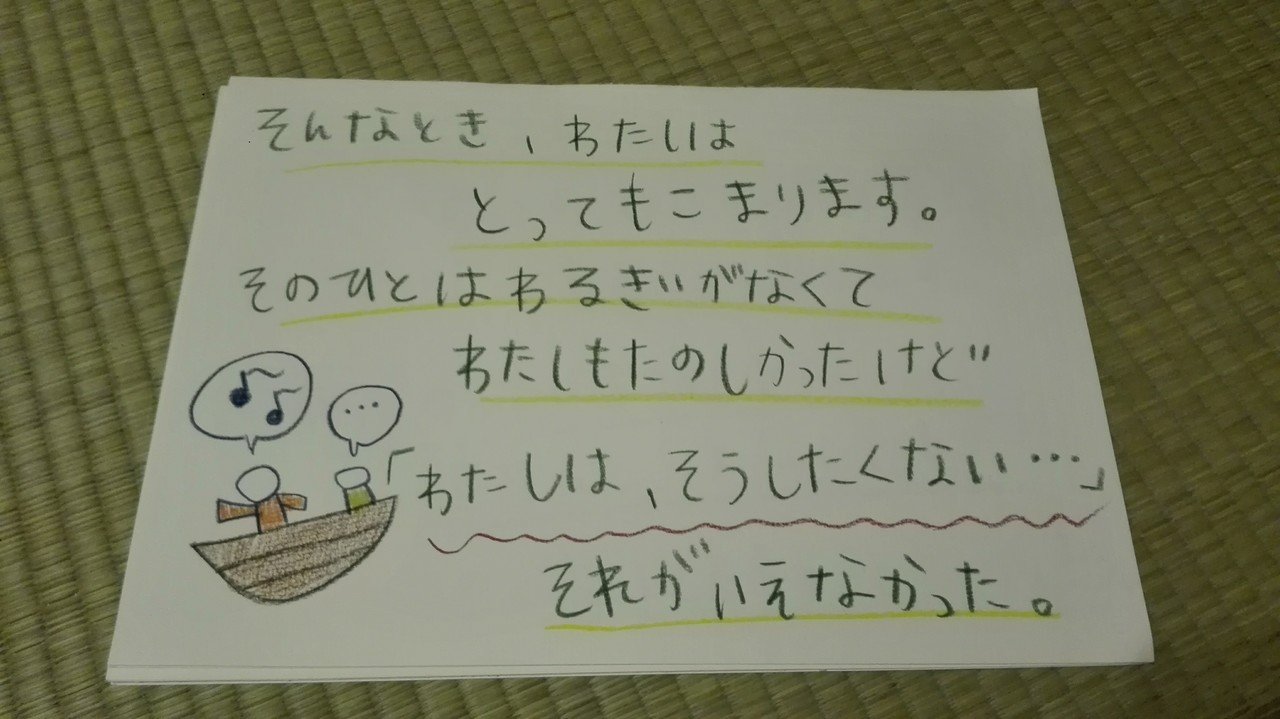 そんなとき、わたしは
とってもこまります。
そのひとはわるぎいがなくて
わたしもたのしかったけど
「わたしは、そうしたくない…」
それがいえなかった。
…